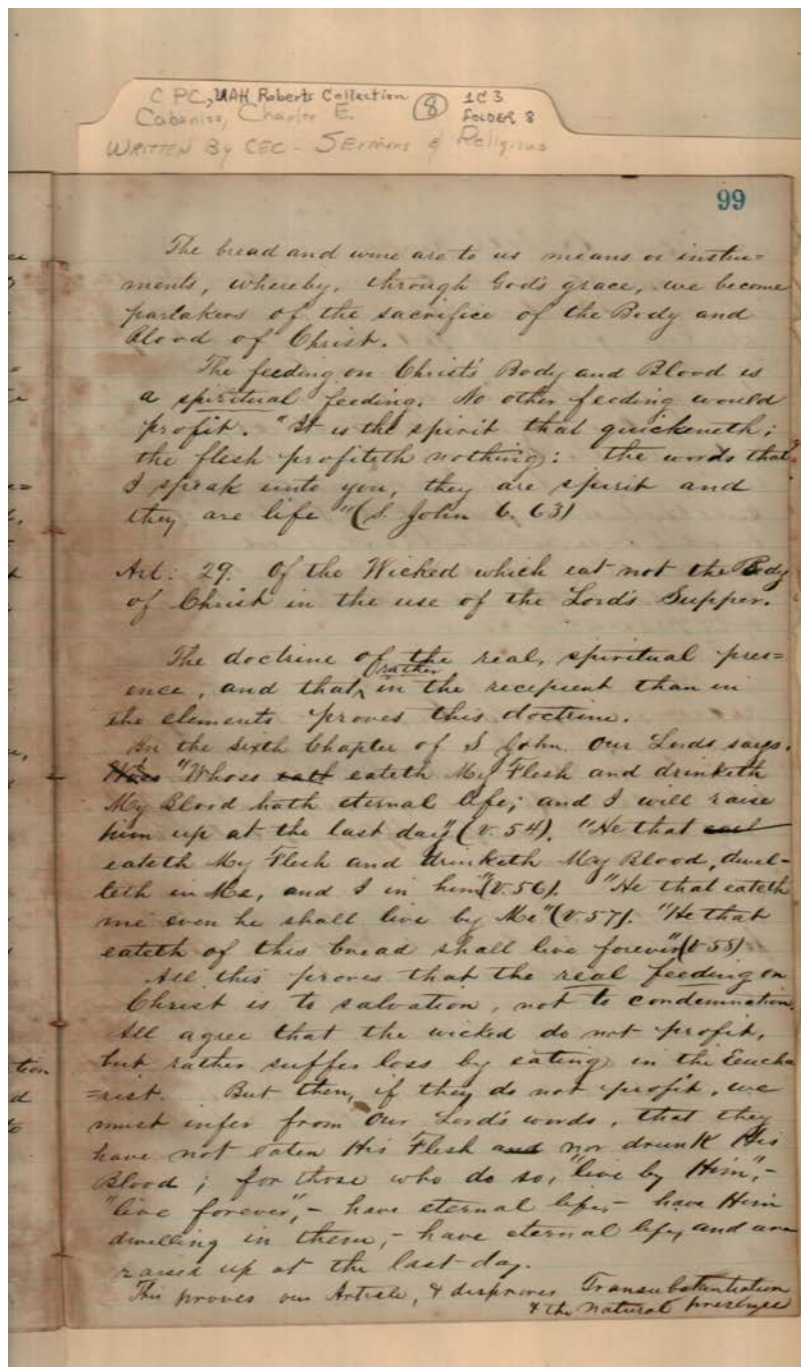 C PC, UAH Roberts Collection 8 1C3
Cabaniss, Charles E. FOLDER 8
WRITTEN By CEC - SErmons & Religious
99
The bread and wine are to us means or instru=
ments, whereby, through God's grace, we become
partakers of the sacrifice of the Body and
Blood of Christ.
The feeding on Christ's Body and Blood is
a spiritual feeding. No other feeding would
profit. "It is the spirit that quickeneth;
the flesh profiteth nothing: the words that
I speak unto you, they are spirit and
they are life" (S. John 6. 63)
Art: 29. Of the Wicked which eat not the Body
of Christ in the use of the Lord's Supper.
The doctrine of the real, spiritual pres=
ence, and that rather in the recipient than in
the elements proves this doctrine.
In the sixth Chapter of S John. Our Lords says.
"Whoso eateth My Flesh and drinketh
My Blood hath eternal life; and I will raise
him up at the last day" (v. 54). "He that
eateth My Flesh and drinketh May Blood, dwel-
leth in Me, and I in him" (v. 56). "He that eateth
me even he shall live by Me" (v. 57). "He that
eateth of this bread shall live forever" (v 58)
All this proves that the real feeding on
Christ is to salvation, not to condemnation.
All agree that the wicked do not profit,
but rather suffer loss by eating in the Eucha
=rist. But then, if they do not profit, we
must infer from Our Lord's words, that they
have not eaten His Flesh and nor drunk His
Blood; for those who do so, "live by Him",-
"live forever",- have eternal life,- have Him
dwelling in them,- have eternal life, and are
raised up at the last day.
This proves our Article, & disproves Transubstantiation
& the natural presence
tion
d
to